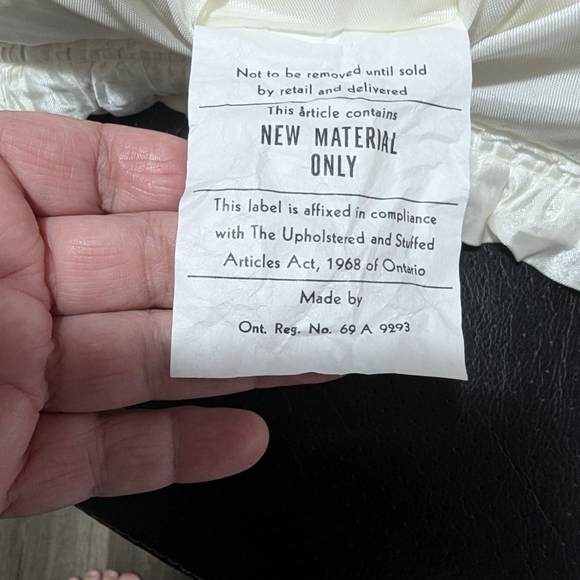 Not to be removed until sold
by retail and delivered
This article contains
NEW MATERIAL
ONLY
This label is affixed in compliance
with The Upholstered and Stuffed
Articles Act, 1968 of Ontario
Made by
Ont. Reg. No. 69 A 9293